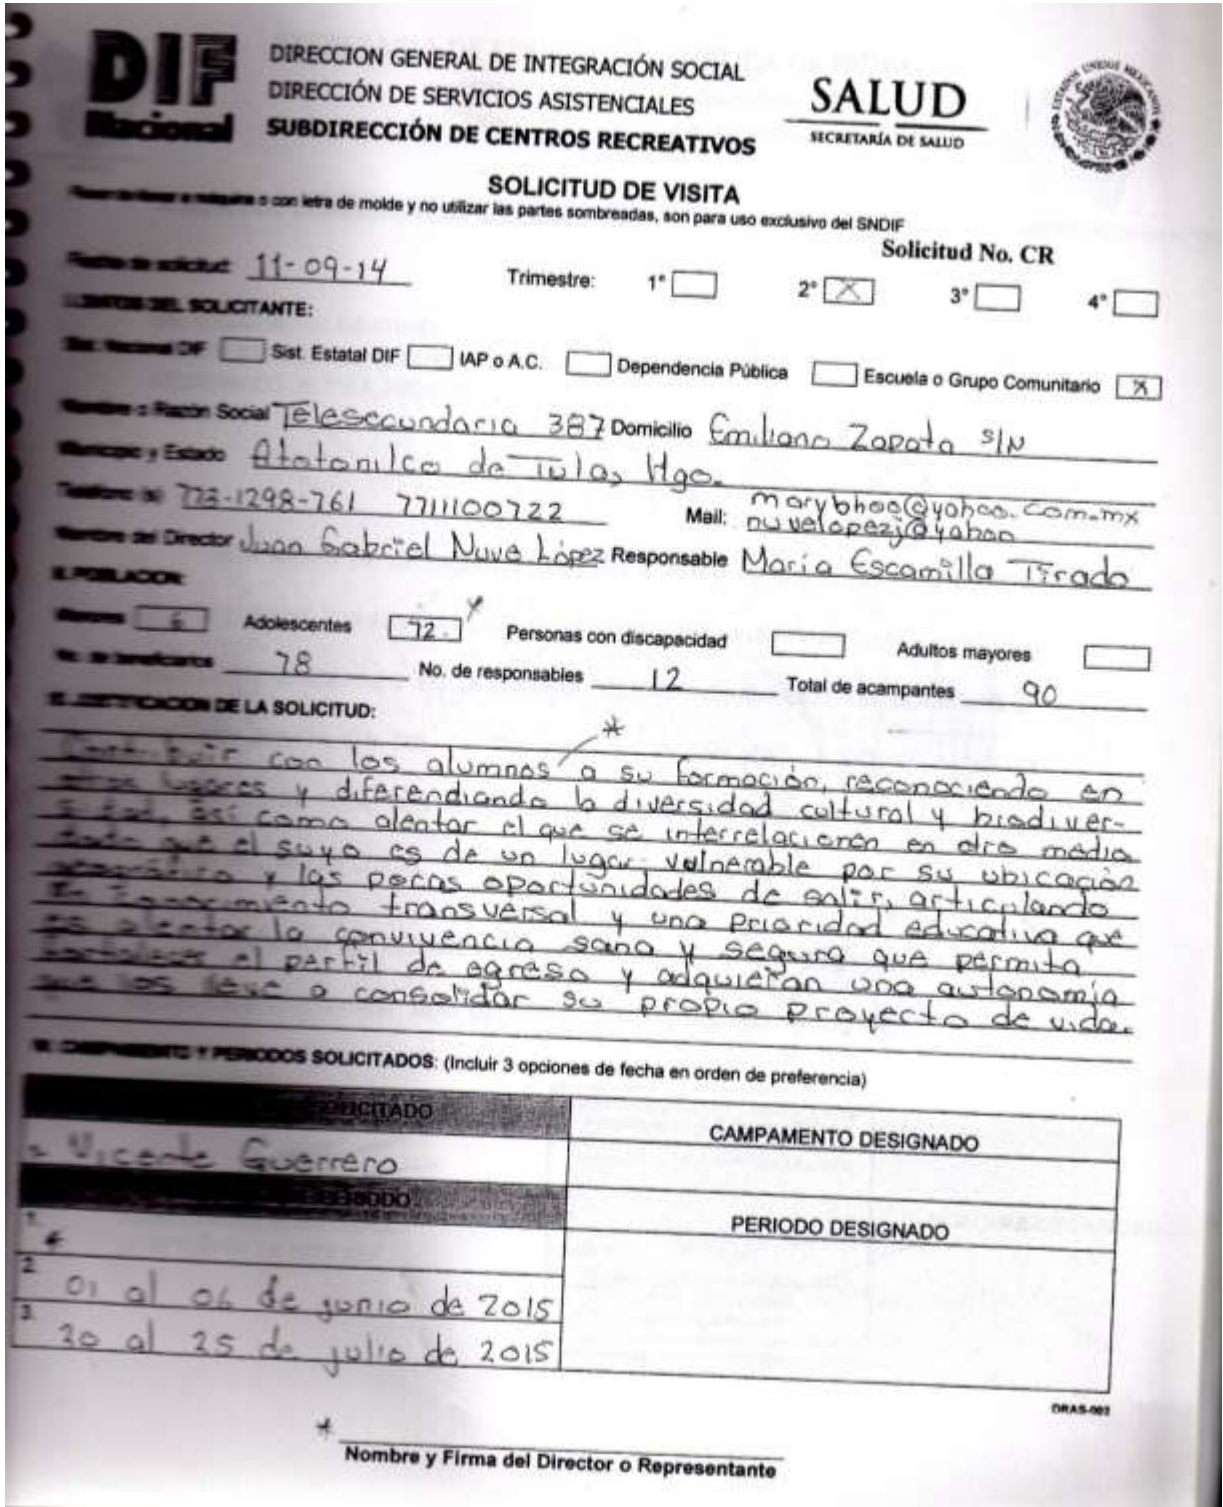 DIF
Nacional
DIRECCION GENERAL DE INTEGRACIÓN SOCIAL
DIRECCIÓN DE SERVICIOS ASISTENCIALES
SUBDIRECCIÓN DE CENTROS RECREATIVOS
SALUD
SECRETARÍA DE SALUD
ESTADOS UNIDOS MEXICANOS
SOLICITUD DE VISITA
a máquina o con letra de molde y no utilizar las partes sombreadas, son para uso exclusivo del SNDIF
Solicitud No. CR
Fecha de solicitud: 11-09-14 Trimestre: 1° 2° X 3° 4°
DEL SOLICITANTE:
Sist. Nacional DIF Sist. Estatal DIF IAP o A.C. Dependencia Pública Escuela o Grupo Comunitario X
Nombre o Razón Social Telesecundaria 387 Domicilio Emiliano Zapata S/N
Municipio y Estado Atotonilco de Tula, Hgo.
Teléfono (s) 773-1298-761 7711100722 Mail: marybhoo@yahoo.com.mx
nuvelopezj@yahoo
Nombre del Director Juan Gabriel Nuve López Responsable María Escamilla Tirado
II. POBLACION:
Menores 6 Adolescentes 72 Personas con discapacidad Adultos mayores
No. de beneficiarios 78 No. de responsables 12 Total de acampantes 90
DE LA SOLICITUD:
*
Contribuir con los alumnos a su formación, reconociendo en
otros lugares y diferendiando la diversidad cultural y biodiver-
sidad, así como alentar el que se interrelacionen en otro medio
dado que el suyo es de un lugar vulnerable por su ubicación
geográfica y las pocas oportunidades de salir, articulando
conocimiento transversal y una prioridad educativa que
es alentar la convivencia sana y segura que permita
fortalecer el perfil de egreso y adquieran una autonomía
que los lleve a consolidar su propio proyecto de vida.
Y PERIODOS SOLICITADOS: (Incluir 3 opciones de fecha en orden de preferencia)
SOLICITADO
CAMPAMENTO DESIGNADO
Vicente Guerrero
PERIODO
PERIODO DESIGNADO
1. *
2. 01 al 06 de junio de 2015
3. 20 al 25 de julio de 2015
DRAS-002
*
Nombre y Firma del Director o Representante